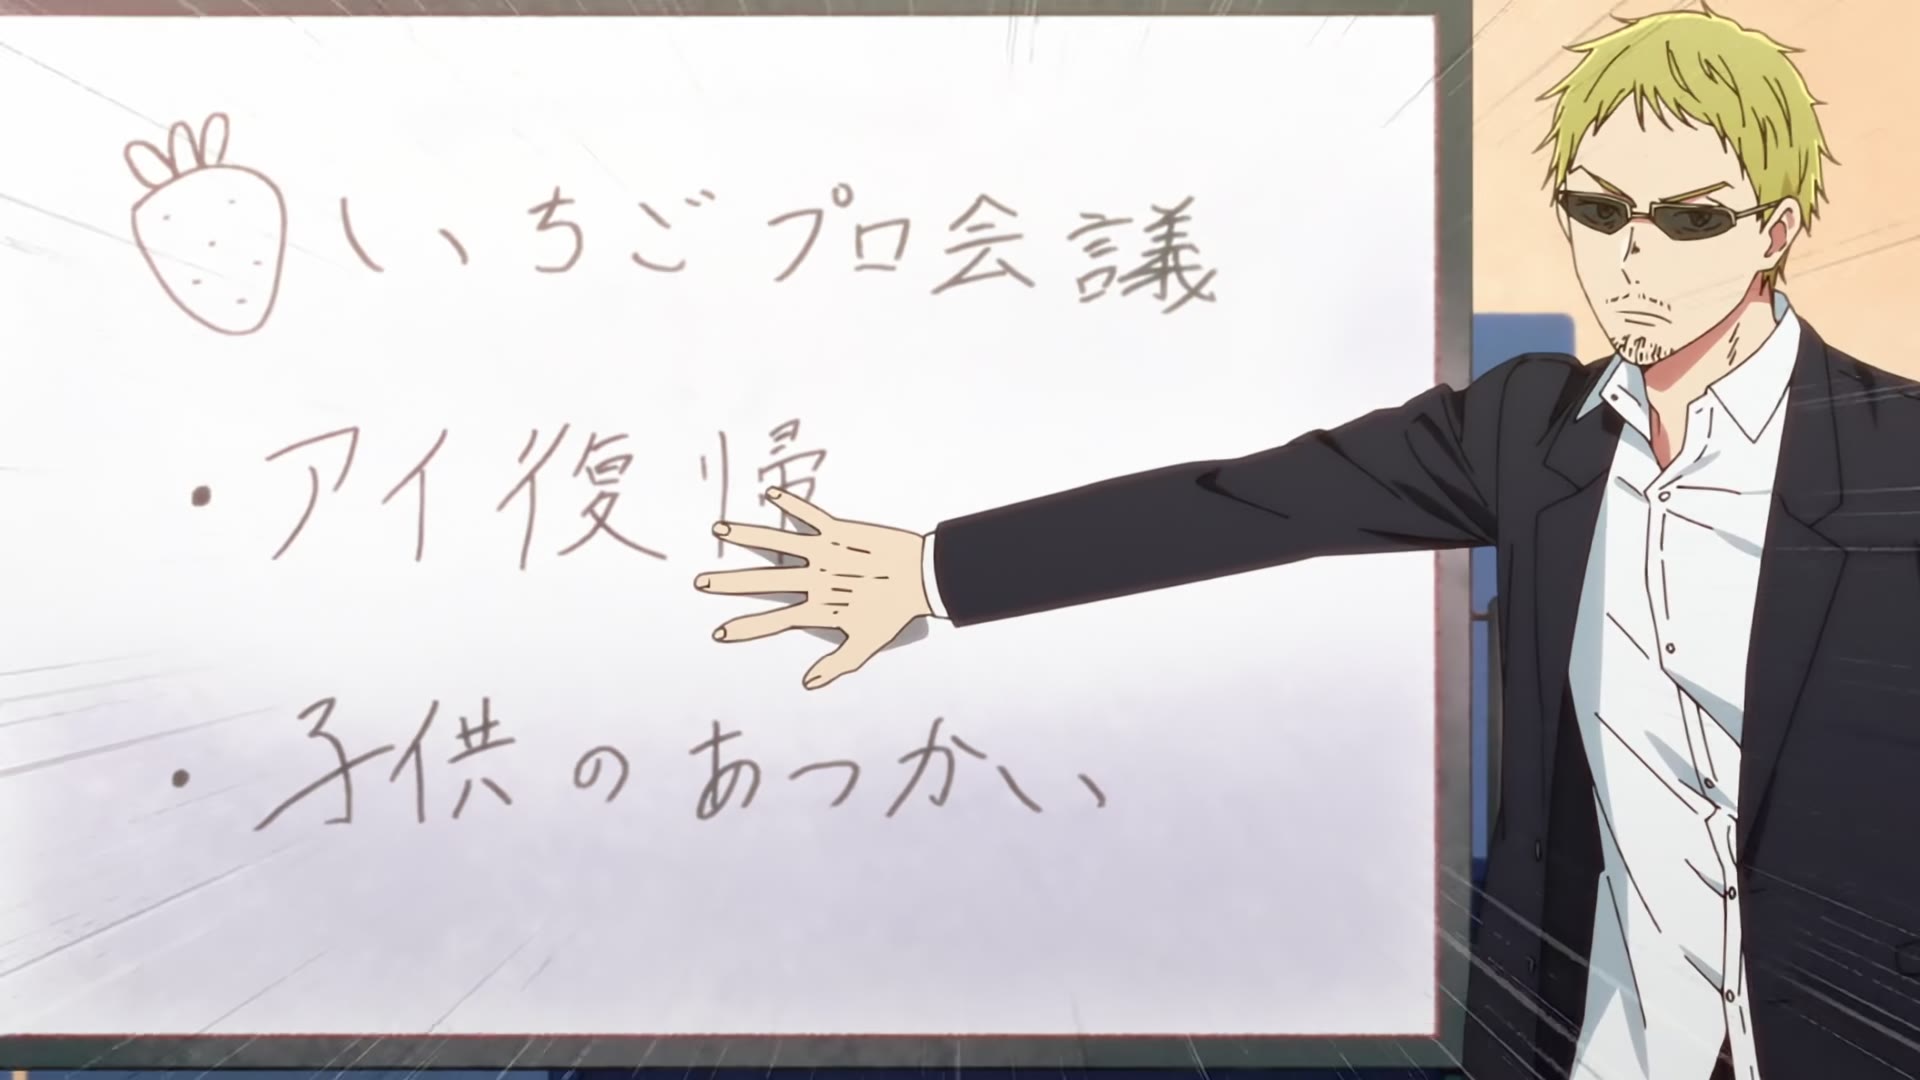 いちごプロ会議
・アイ復帰
・子供のあつかい